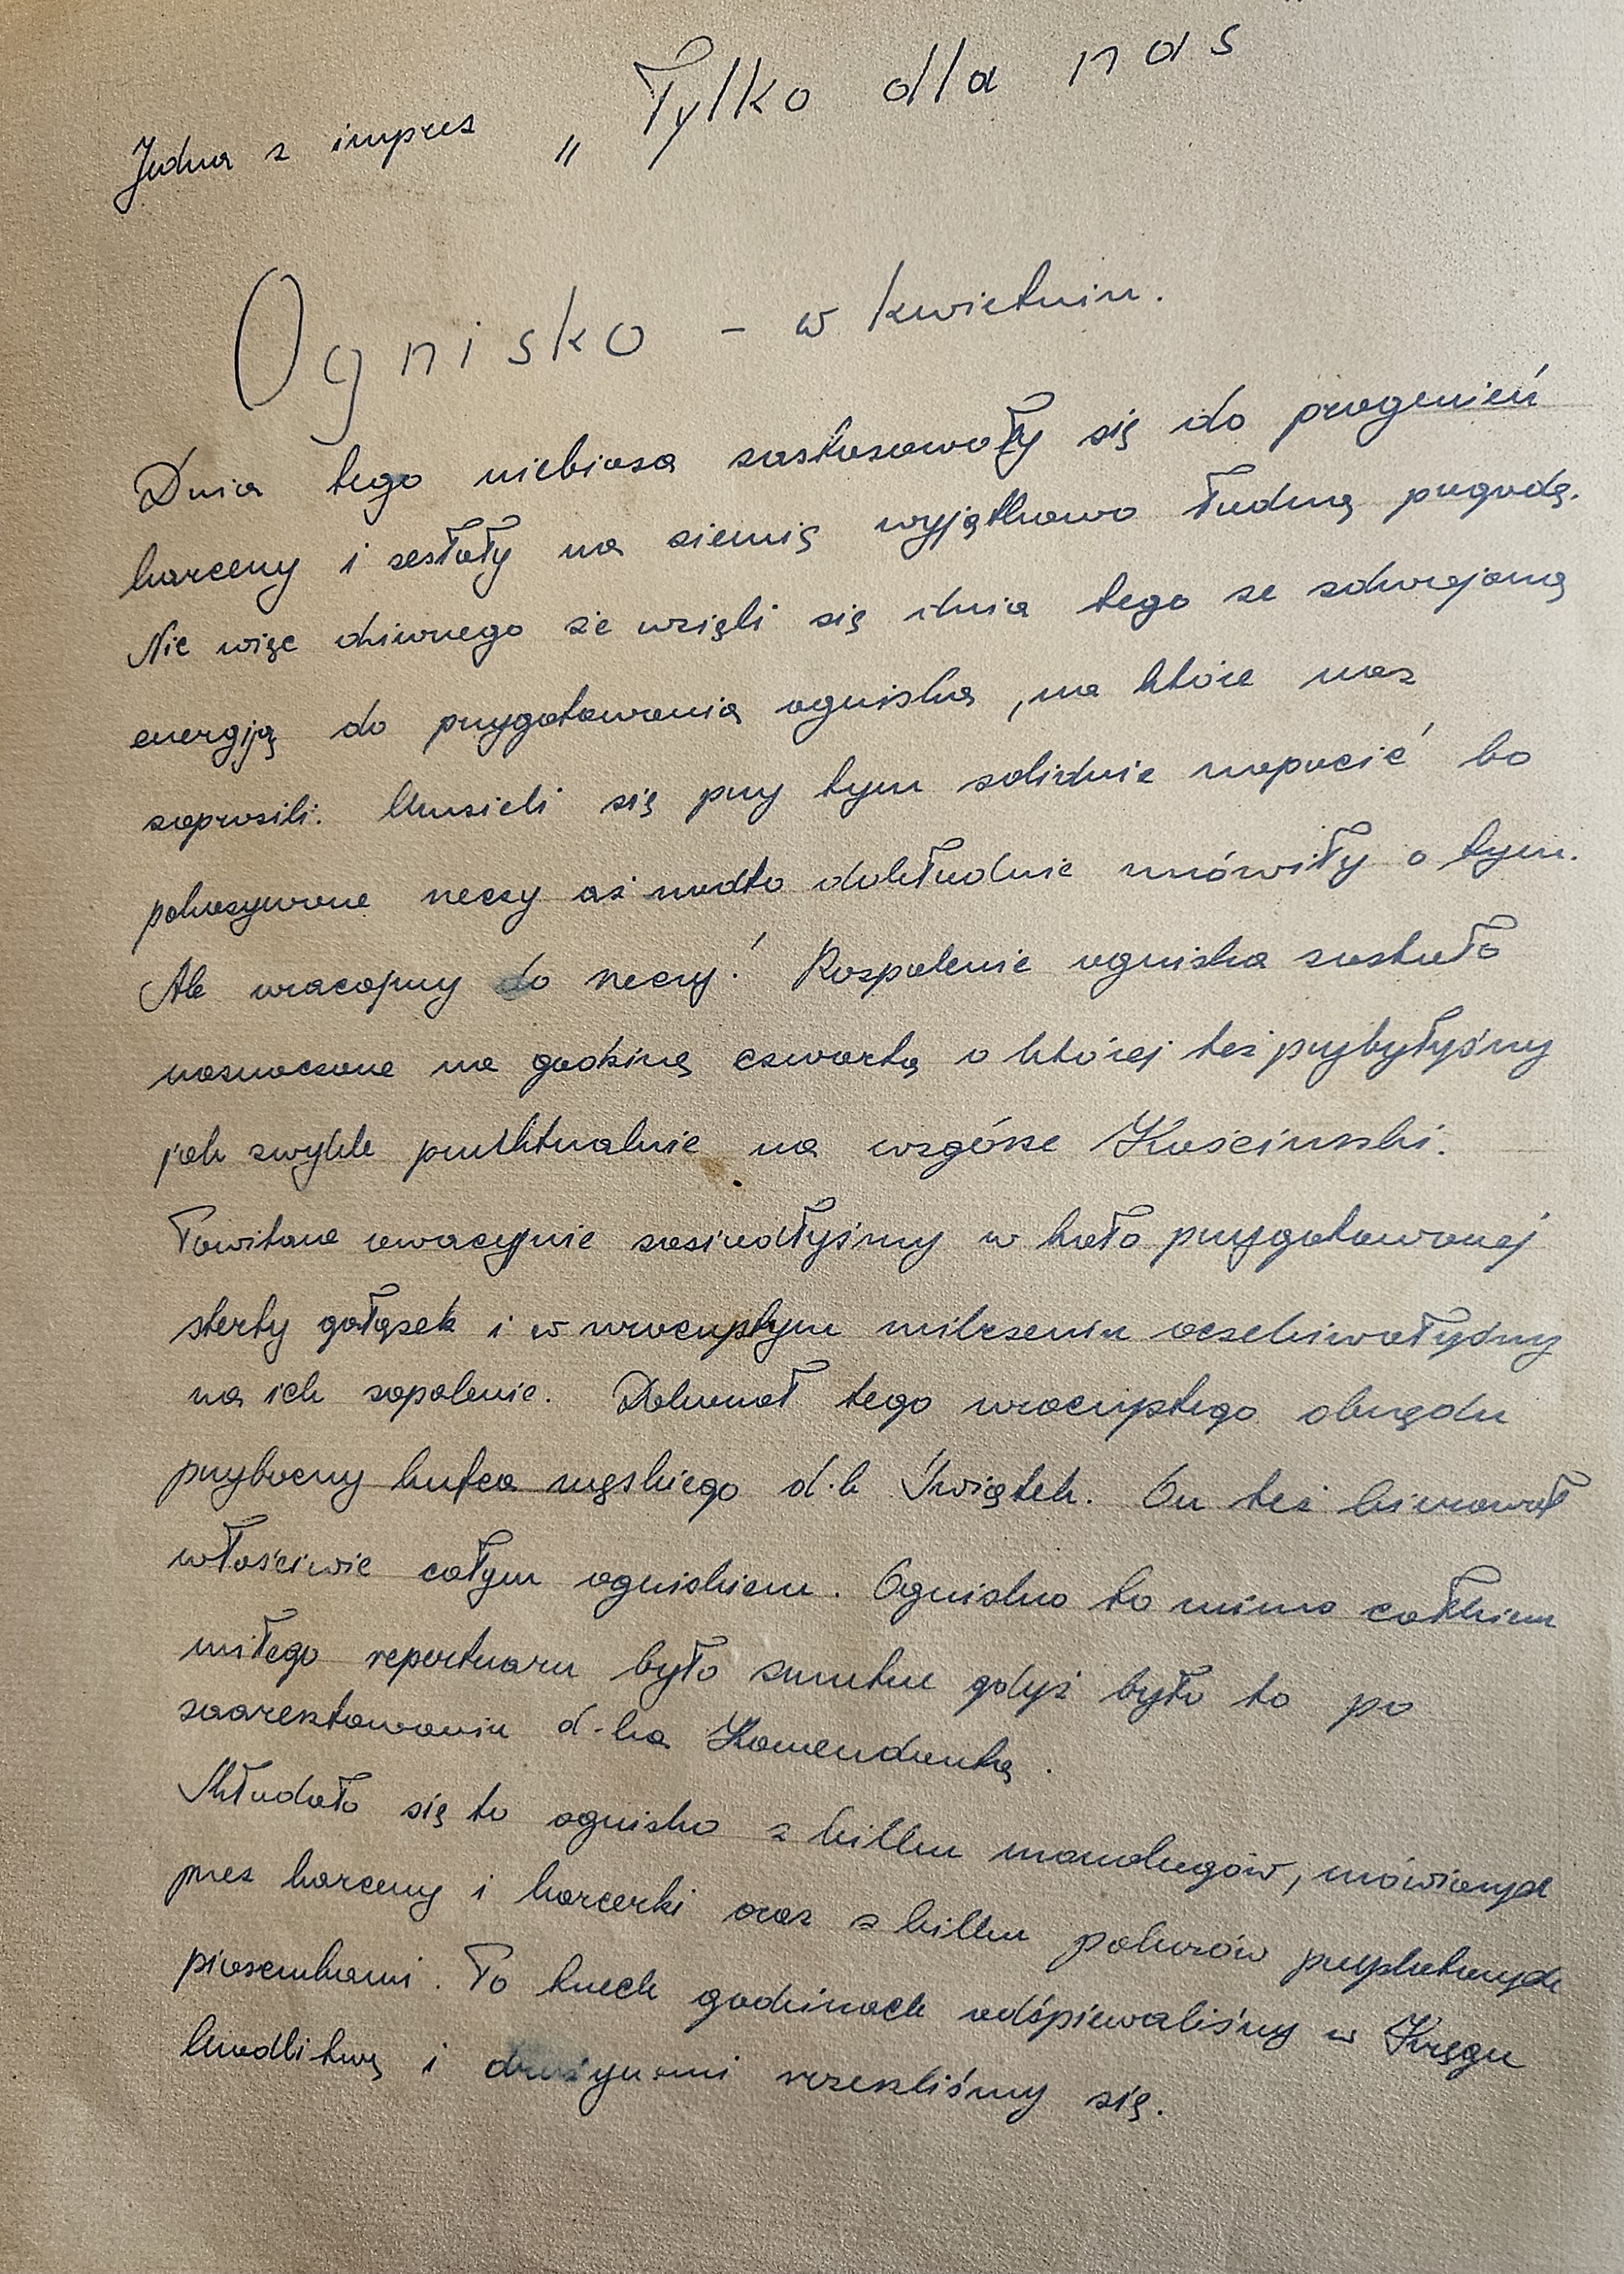 Jedna z imprez „Tylko dla nas"
Ognisko - w kwietniu.
Dnia tego niebiosa zastosowały się do pragenień
harcerzy i zesłały na ziemię wyjątkowo ładną pogodę.
Nic więc dziwnego że wzięli się dnia tego ze zdwojoną
energiją do przygotowania ogniska, na które nas
zaprosili. Musieli się przy tym solidnie napocić bo
pokazywane rzeczy aż nadto dokładnie mówiły o tym.
Ale wracajmy do rzeczy! Rozpalenie ogniska zostało
naznaczone na godzinę czwartą o której też przybyłyśmy
jak zwykle punktualnie na wzgórze Kościuszki.
Powitane owacyjnie zasiadłyśmy w koło przygotowanej
sterty gałązek i w uroczystym milczeniu oczekiwałyśmy
na ich zapalenie. Dokonał tego uroczystego obrzędu
przyboczny hufca męskiego d.h Świątek. On też kierował
właściwie całym ogniskiem. Ognisko to mimo całkiem
miłego repertuaru było smutne gdyż było to po
zaaresztowaniu d-ha Komendanta.
Składało się to ognisko z kilku monologów, mówionych
przez harcerzy i harcerki oraz z kilku pokazów przeplatanych
piosenkami. Po trzech godzinach odśpiewaliśmy w Kręgu
Modlitwę i drużynami rozeszliśmy się.